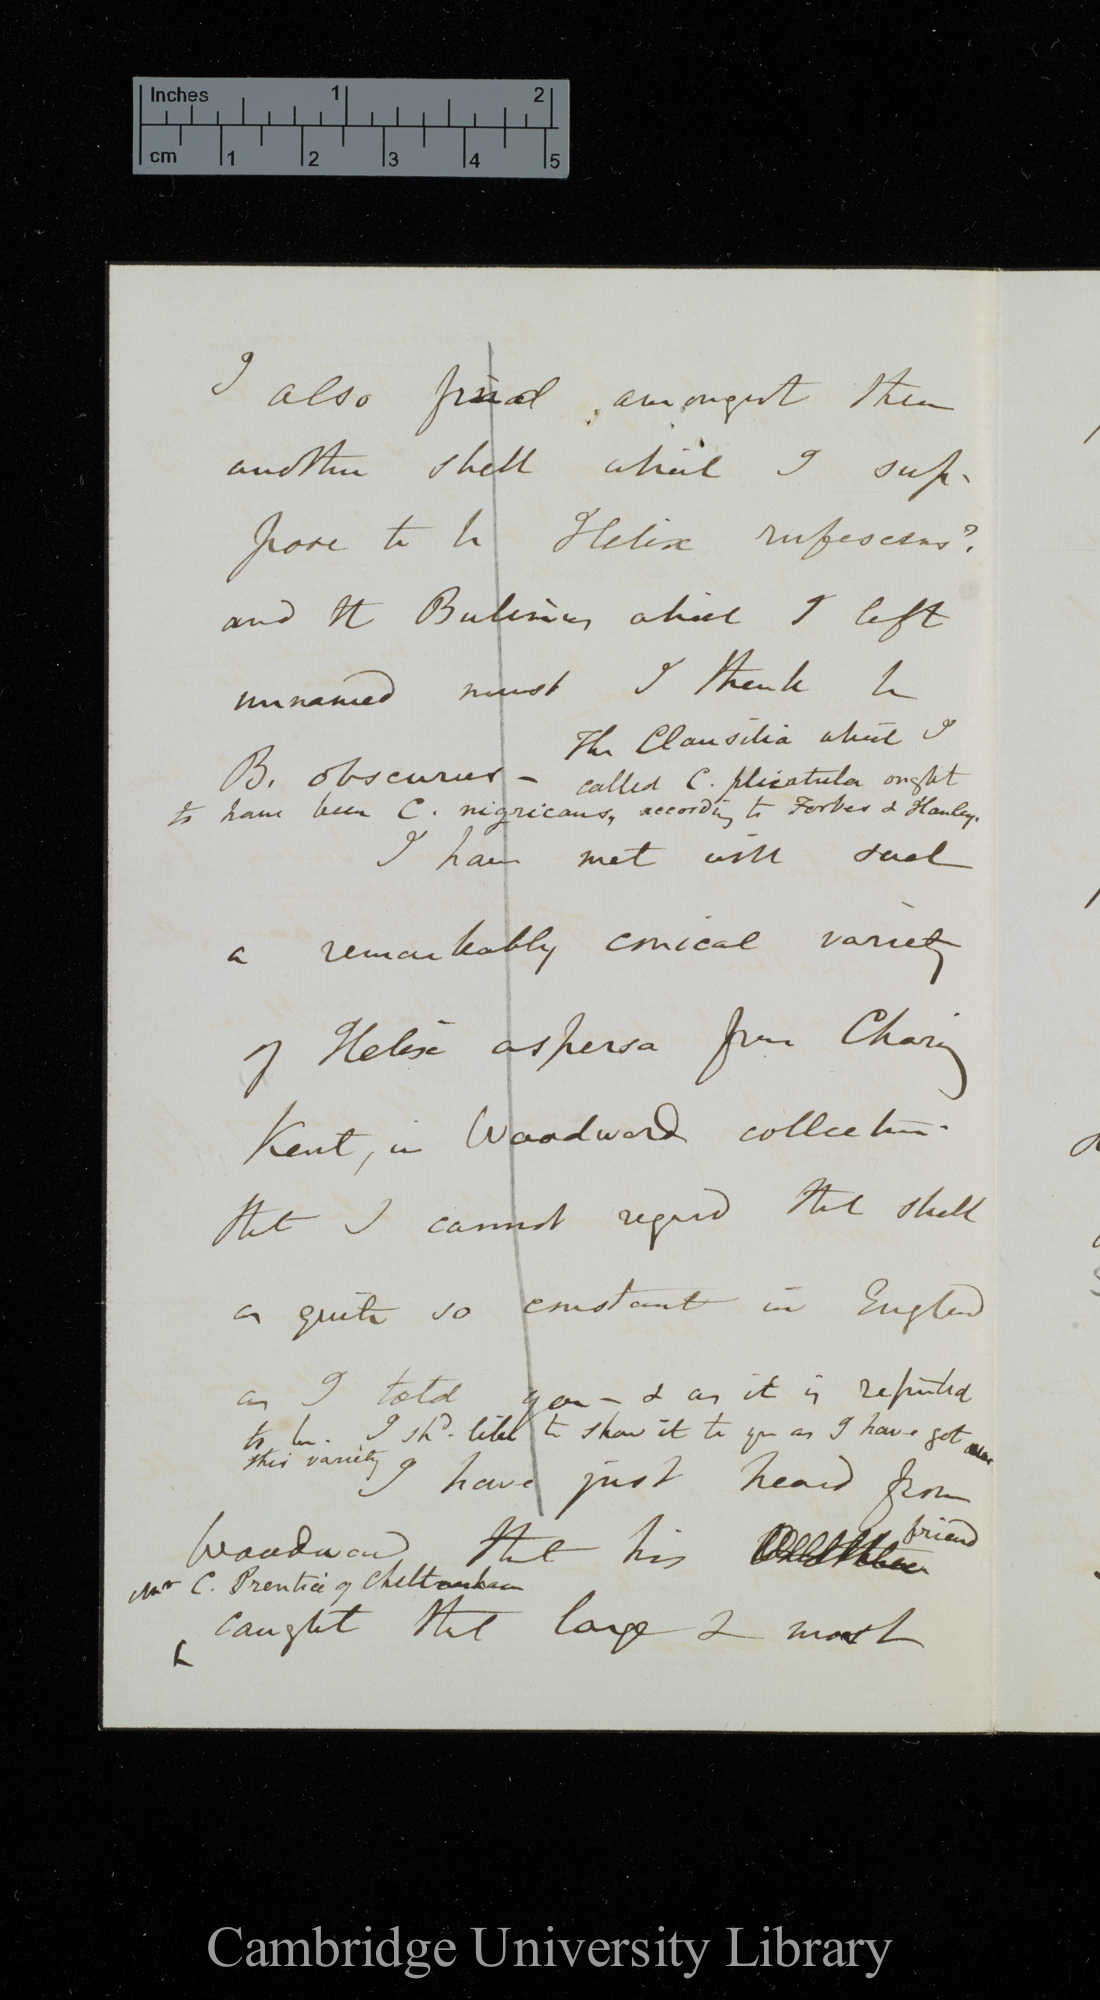 Inches 1 2
cm 1 2 3 4 5
I also find amongst them
another shell which I sup-
pose to be Helix rufescens?.
and the Bulimus which I left
unnamed must I think be
B. obscurus – The Clausilia which I
called C. plicatula ought
to have been C. nigricans, according to Forbes & Hanley.
I have met with such
a remarkably conical variety
of Helix aspersa from Charing
Kent, in Woodward collection.
that I cannot regard that shell
as quite so constant in England
as I told you – & as it is reputed
to be. I shd. like to show it to you as I have got
this variety
I have just heard from
Woodward that his friend
Mr C. Prentice of Cheltenham
caught the large & most
Cambridge University Library